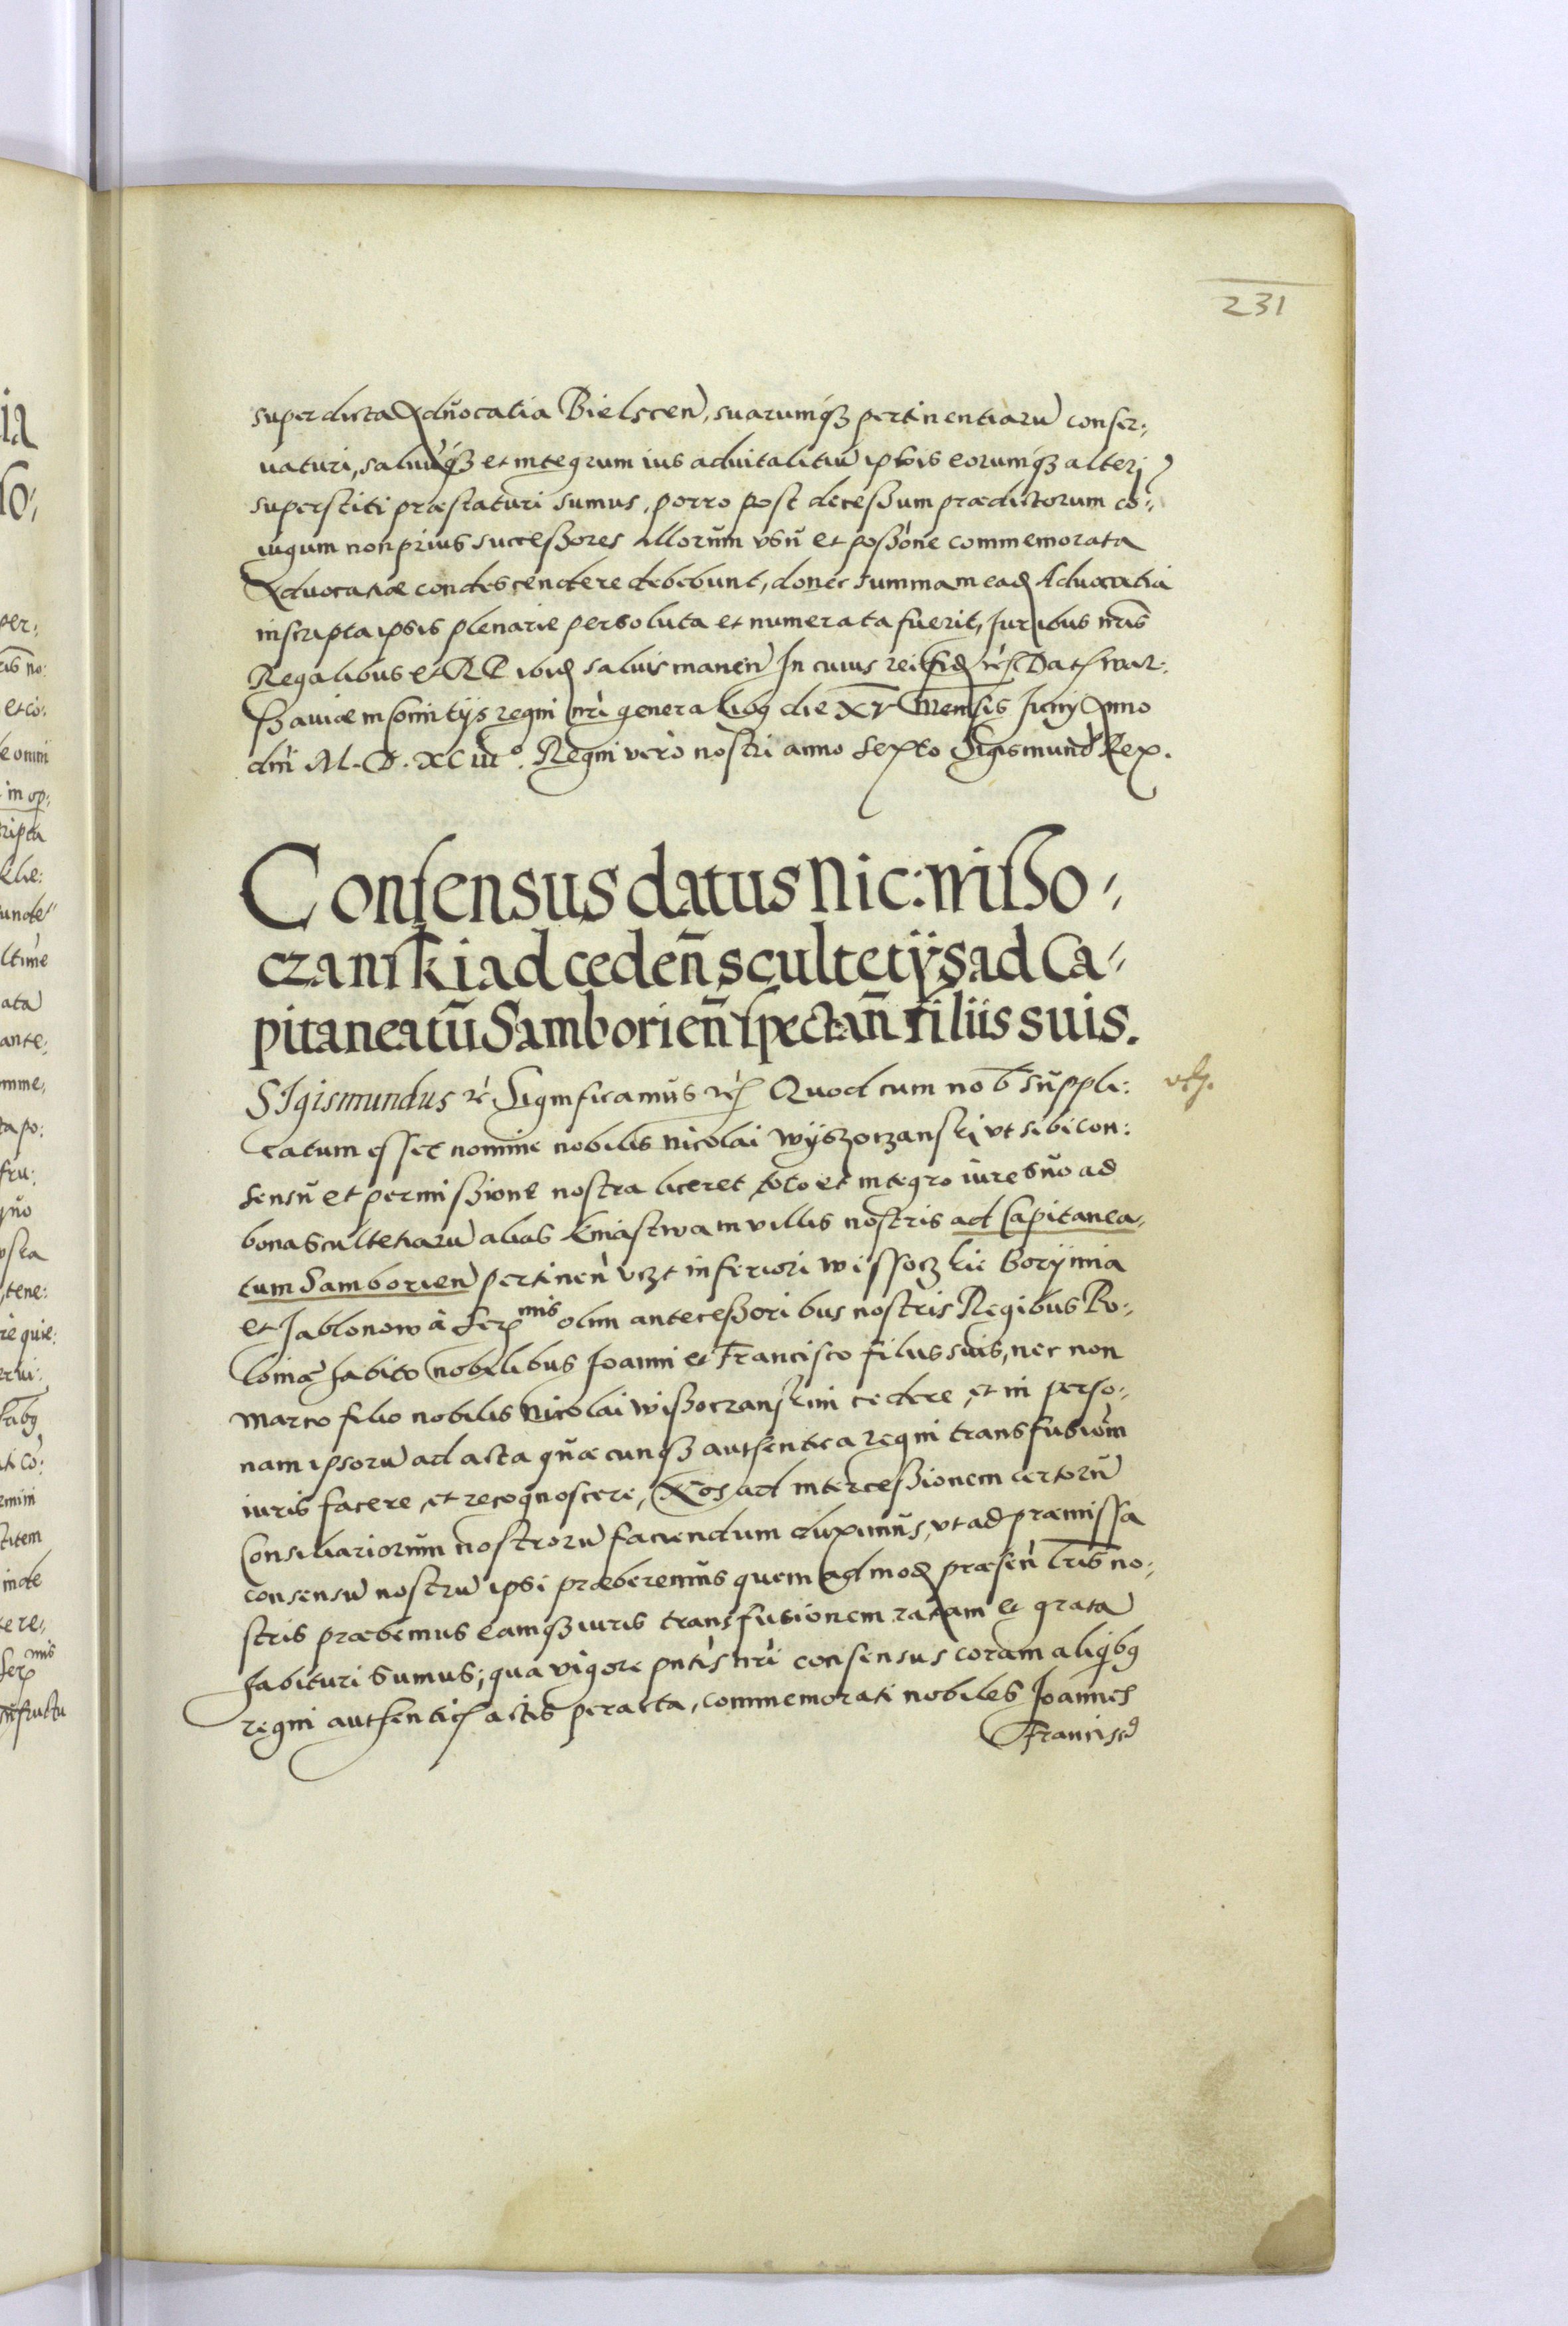 231
super dicta Aduocatia Bielscen̄, suarumq̃ꝫ pertinentiarū conser:
uaturi, saluūq̃ꝫ et integrum ius aduitalitiū ipsis eorumq̃ꝫ alteri
superstiti præstaturi sumus, porro post decessum prædictorum cō:
iugum non prius successores illorum vsū et possōne commemorata
Aduocatiæ condescendere debebunt, donec summam ead Aduocatia
inscripta ipsis plenarie persoluta et numerata fuerit, Juribus nr̄is
Regalibus et RP ibid saluis manen̄ In cuius rei fid etc Dat War:
ssauiæ in Comitijs regni nr̄i generalibꝫ die XV Mensis Junij Anno
dn̄i M.D.XCiii°. Regni vero nostri anno Sexto Sigismund Rex.
Consensus datus Nic: Wisso:
czanski ad ceden̄ scultetijs ad Ca:
pitaneatū Samborien̄ spectan̄ filiis suis.
SIgismundus etc Significamus etc Quod cum nob suppli:
catum esset nomine nobilis Nicolai Wÿszoczanski vt sibi con:
sensū et permissione nostra liceret toto et integro iure suo ad
bona scultetiarū alias Kniastwa in villis nostris ad Capitanea:
tum Samborien̄ pertinen̄ vczt inferiori Wissoczkie Borÿnia
et Jablonow à Sermis olim antecessoribus nostris Regibus Po:
loniæ habito nobilibus Joanni et Francisco filiis suis, nec non
Marco filio nobilis Nicolai Wissoczanskim cedere, et in perso:
nam ipsorū ad acta quæcunqꝫ authentica regni transfusiōm
iuris facere, et recognoscere, Nos ad intercessionem certorū
Consiliariorum nostrorū faciendum duximus, vt ad præmissa
consensū nostrū ipsi præberemus quem admod præsen̄ lr̄is no:
stris præbemus eamqꝫ iuris transfusionem ratam et gratā
habituri sumus; qua vigore pn̄tis nr̄i consensus coram aliqibꝫ
regni authentic actis peracta, commemorati nobiles Joannes
Francisc9